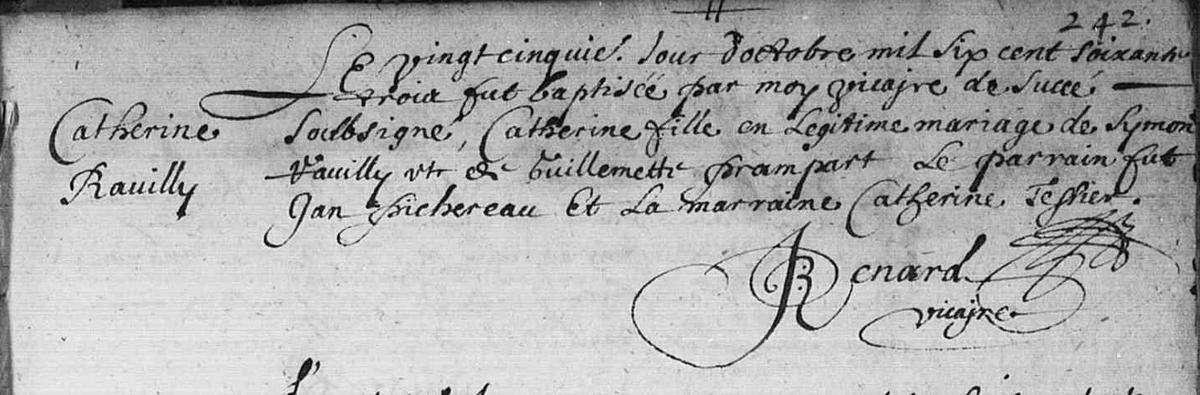 242.
Le vingt cinquies. Jour doctobre mil six cent soixante
trois fut baptisée par moy vicaire de succé
Catherine
Soubsigné, Catherine fille en Legitime mariage de Symon
Ravilly
Ravilly et de Guillemette prampart Le parrain fut
Jan pichereau Et La marraine Catherine Tessier.
Renard
vicaire